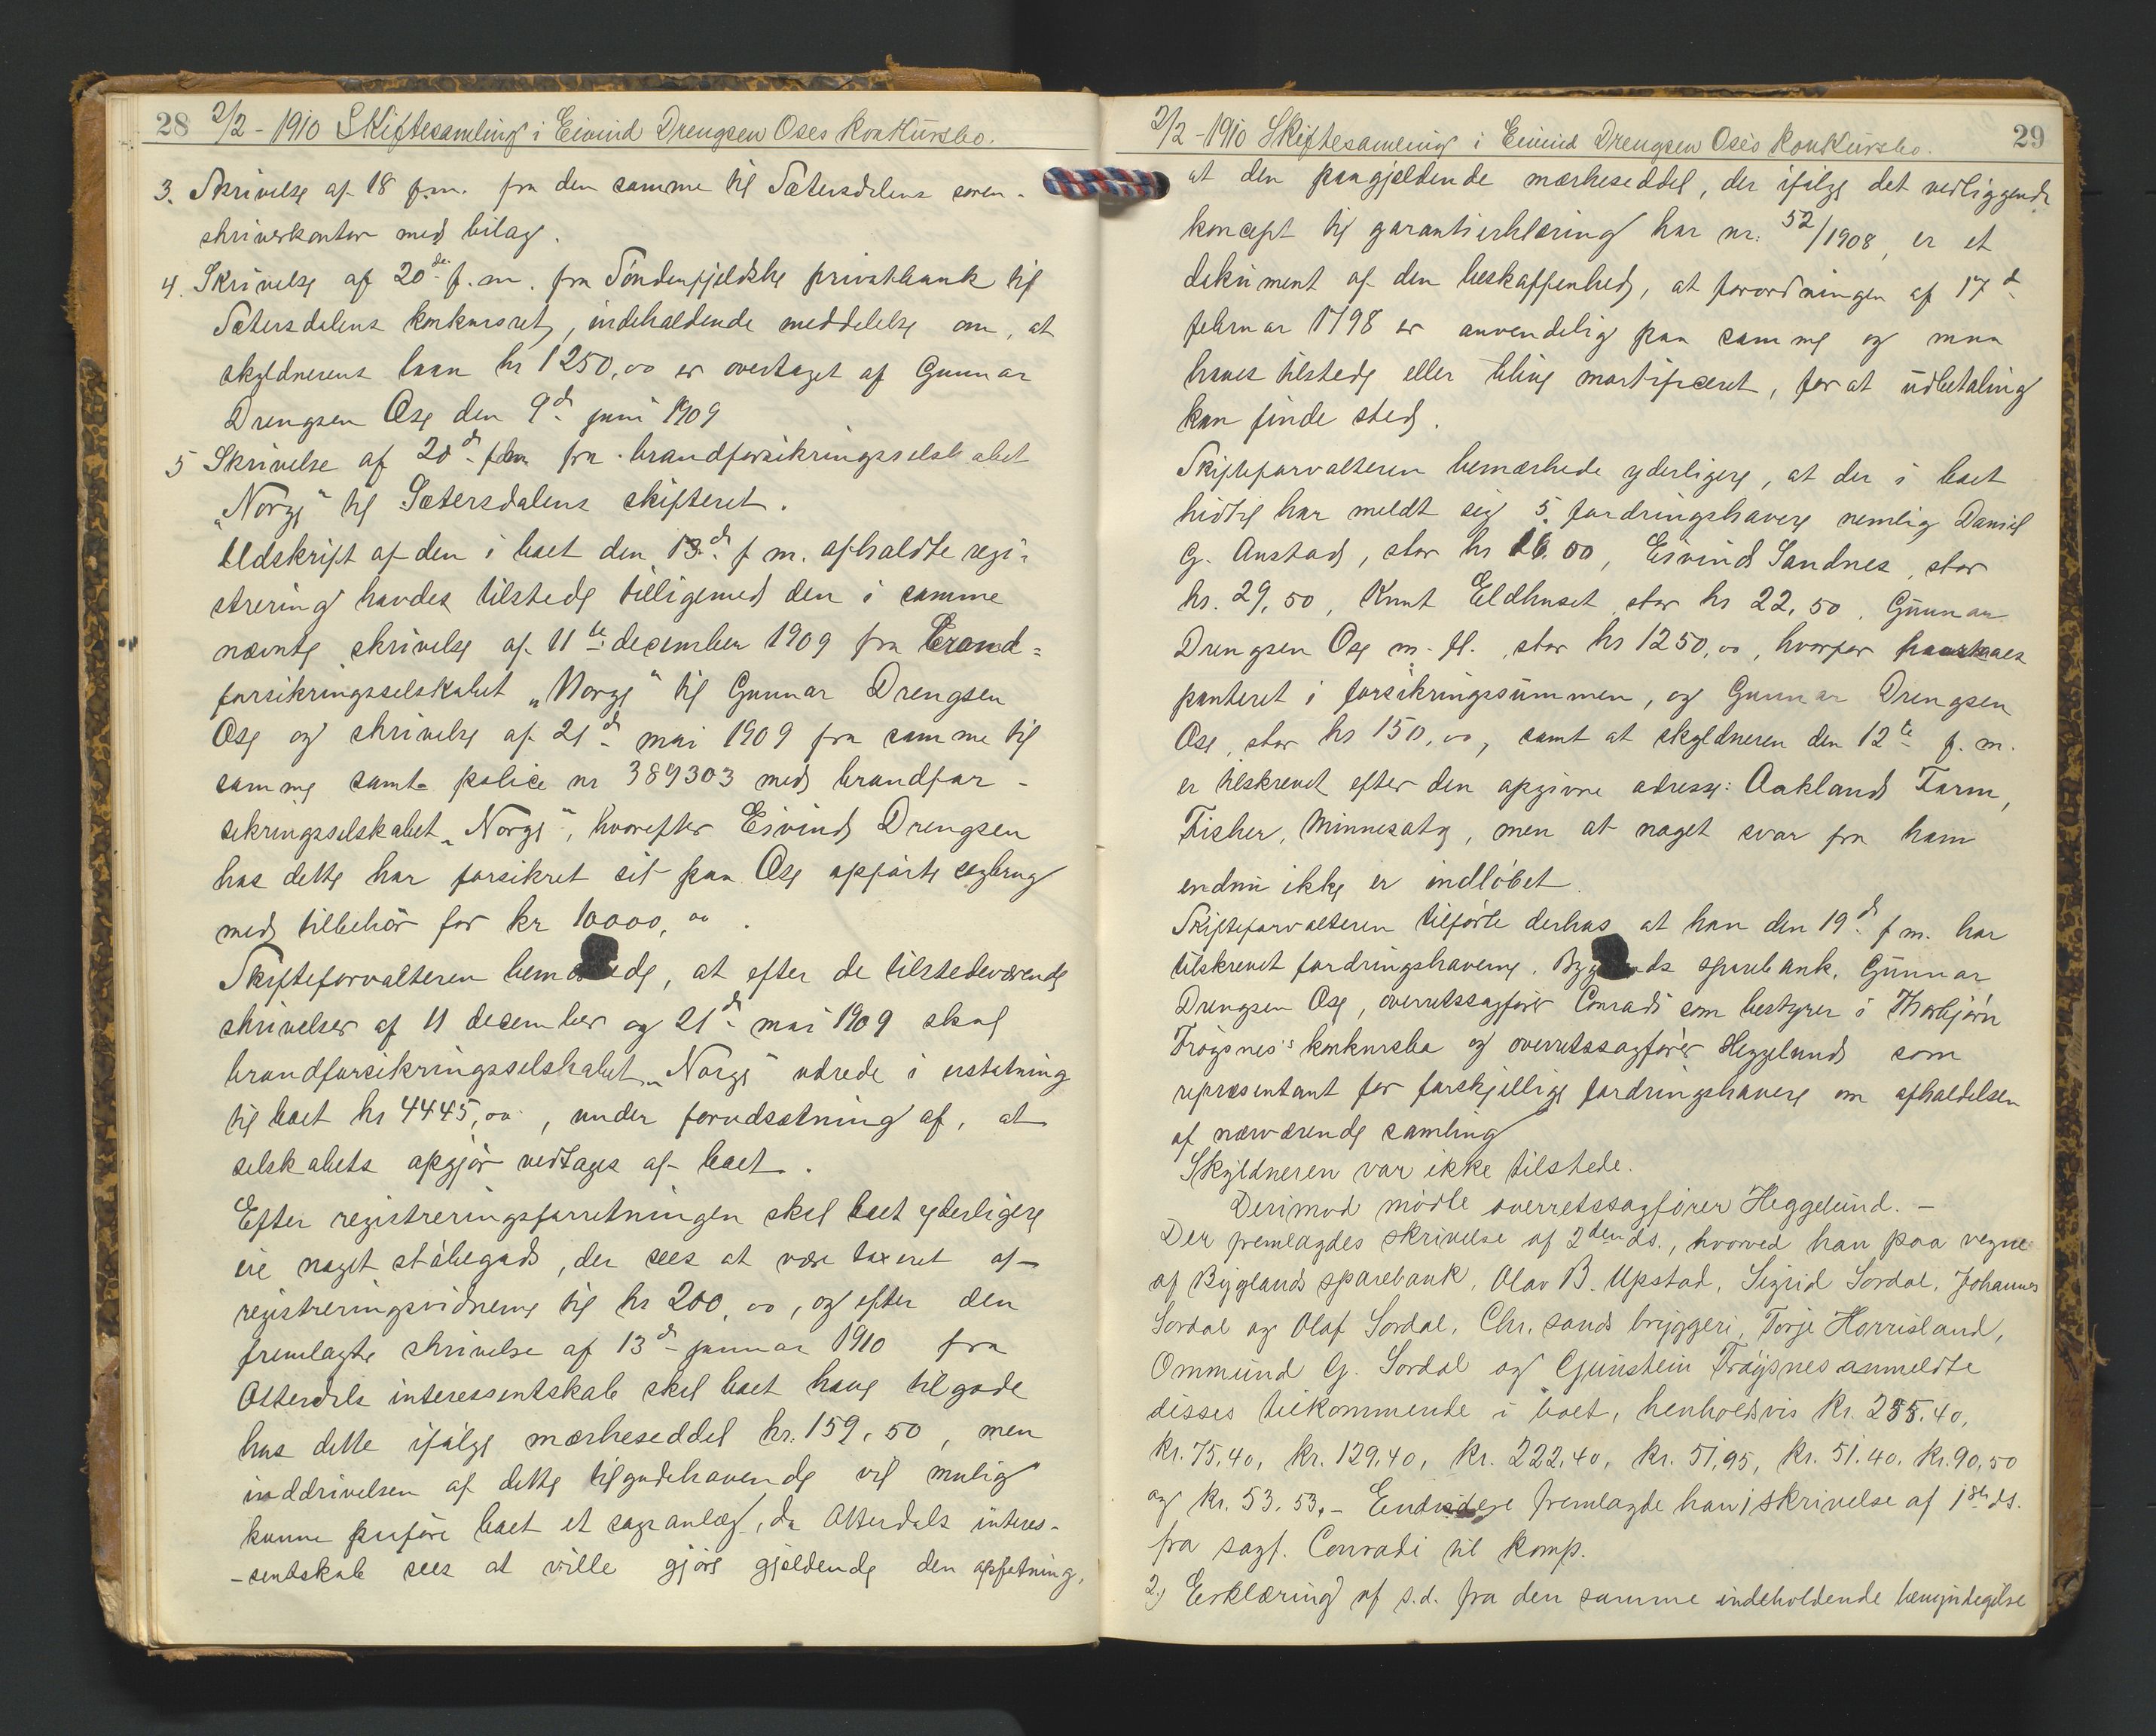 28 2/2 - 1910 Skiftesamling i Eivind Drengsen Oses konkursbo.
3. Skrivelse af 18 f.m. fra den samme til Sætersdalens soren-
skriverkontor med bilag.
4. Skrivelse af 20de f.m. fra Søndenfjeldske privatbank til
Sætersdalens konkursret, indeholdende meddelelse om, at
skyldnerens laan kr 1250,00 er overtaget af Gunnar
Drengsen Ose den 9de juni 1909
5 Skrivelse af 20de f.m. fra brandforsikringsselskabet
"Norge" til Sætersdalens skifteret.
Udskrift af den i boet den 13de f.m. afholdte regi-
strering havdes tilstede tilligemed den i samme
nævnte skrivelse af 11te december 1909 fra brand=
forsikringsselskabet "Norge" til Gunnar Drengsen
Ose og skrivelse af 21de mai 1909 fra samme til
samme samt police nr 389303 med brandfor-
sikringsselskabet "Norge", hvorefter Eivind Drengsen
hos dette har forsikret sit paa Ose opførte sagbrug
med tilbehør for kr 10000,00.
Skifteforvalteren bemærkede, at efter de tilstedeværende
skrivelser af 11 december og 21de mai 1909 skal
brandforsikringsselskabet "Norge" udrede i erstatning
til boet kr 4445,00, under forudsætning af, at
selskabets opgjør vedtages af boet.
Efter registreringsforretningen skal boet yderligere
eie noget støbegods, der sees at være taxeret af
registreringsvidnerne til kr 200,00, og efter den
fremlagte skrivelse af 13de januar 1910 fra
Otterdals interessentskab skal boet have tilgode
hos dette ifølge mærkeseddel kr. 159,50, men
inddrivelsen af dette tilgodehavende vil mulig
kunne paaføre boet et sagsanlæg, da Otterdals interes-
-sentskab sees at ville gjøre gjeldende den opfatning,
2/2 - 1910 Skiftesamling i Eivind Drengsen Oses konkursbo. 29
at den paagjældende mærkeseddel, der ifølge det vedliggende
koncept til garantierklæring har nr. 52/1908, er et
dokument af den beskaffenhed, at forordningen af 17de
februar 1798 er anvendelig paa samme og maa
haves tilstede eller blive mortificeret, for at udbetaling
kan finde sted.
Skifteforvalteren bemærkede yderligere, at der i boet
hidtil har meldt sig 5 fordringshavere nemlig Daniel
G. Austad, stor kr 16,00, Eivind Sandnes, stor
kr. 29,50, Knut Eldhuset, stor kr 22,50, Gunnar
Drengsen Ose m. fl., stor kr 1250,00, hvorfor paastaaes
panteret i forsikringssummen, og Gunnar Drengsen
Ose, stor kr 150,00, samt at skyldneren den 12te f.m.
er tilskrevet efter den opgivne adresse: Aakland Farm,
Fisher, Minnesota, men at noget svar fra ham
endnu ikke er indløbet.
Skifteforvalteren tilførte derhos at han den 19de f.m. har
tilskrevet fordringshaverne, Byglands sparebank, Gunnar
Drengsen Ose, overretssagfører Conradi som bestyrer i Thorbjørn
Frøysnes's konkursbo og overretssagfører Heggelund som
repræsentant for forskjellige fordringshavere om afholdelsen
af nærværende samling
Skyldneren var ikke tilstede.
Derimod mødte overretssagfører Heggelund. -
Der fremlagdes skrivelse af 2den ds., hvorved han paa vegne
af Byglands sparebank, Olav B. Upstad, Sigrid Sordal, Johannes
Sordal og Olaf Sordal, Chr.sands bryggeri, Torje Horrisland,
Ommund G. Sordal og Gunstein Frøysnes anmeldte
disses tilkommende i boet, henholdsvis kr. 255.40,
kr. 75,40, kr. 129,40, kr. 222,40, kr. 51,95, kr. 51.40, kr. 90,50
og kr. 53.53. - Endvidere fremlagde han 1 skrivelse af 1ste ds.
fra sagf. Conradi til komp.
2.) Erklæring af s.d. fra den samme indeholdende bemyndigelse